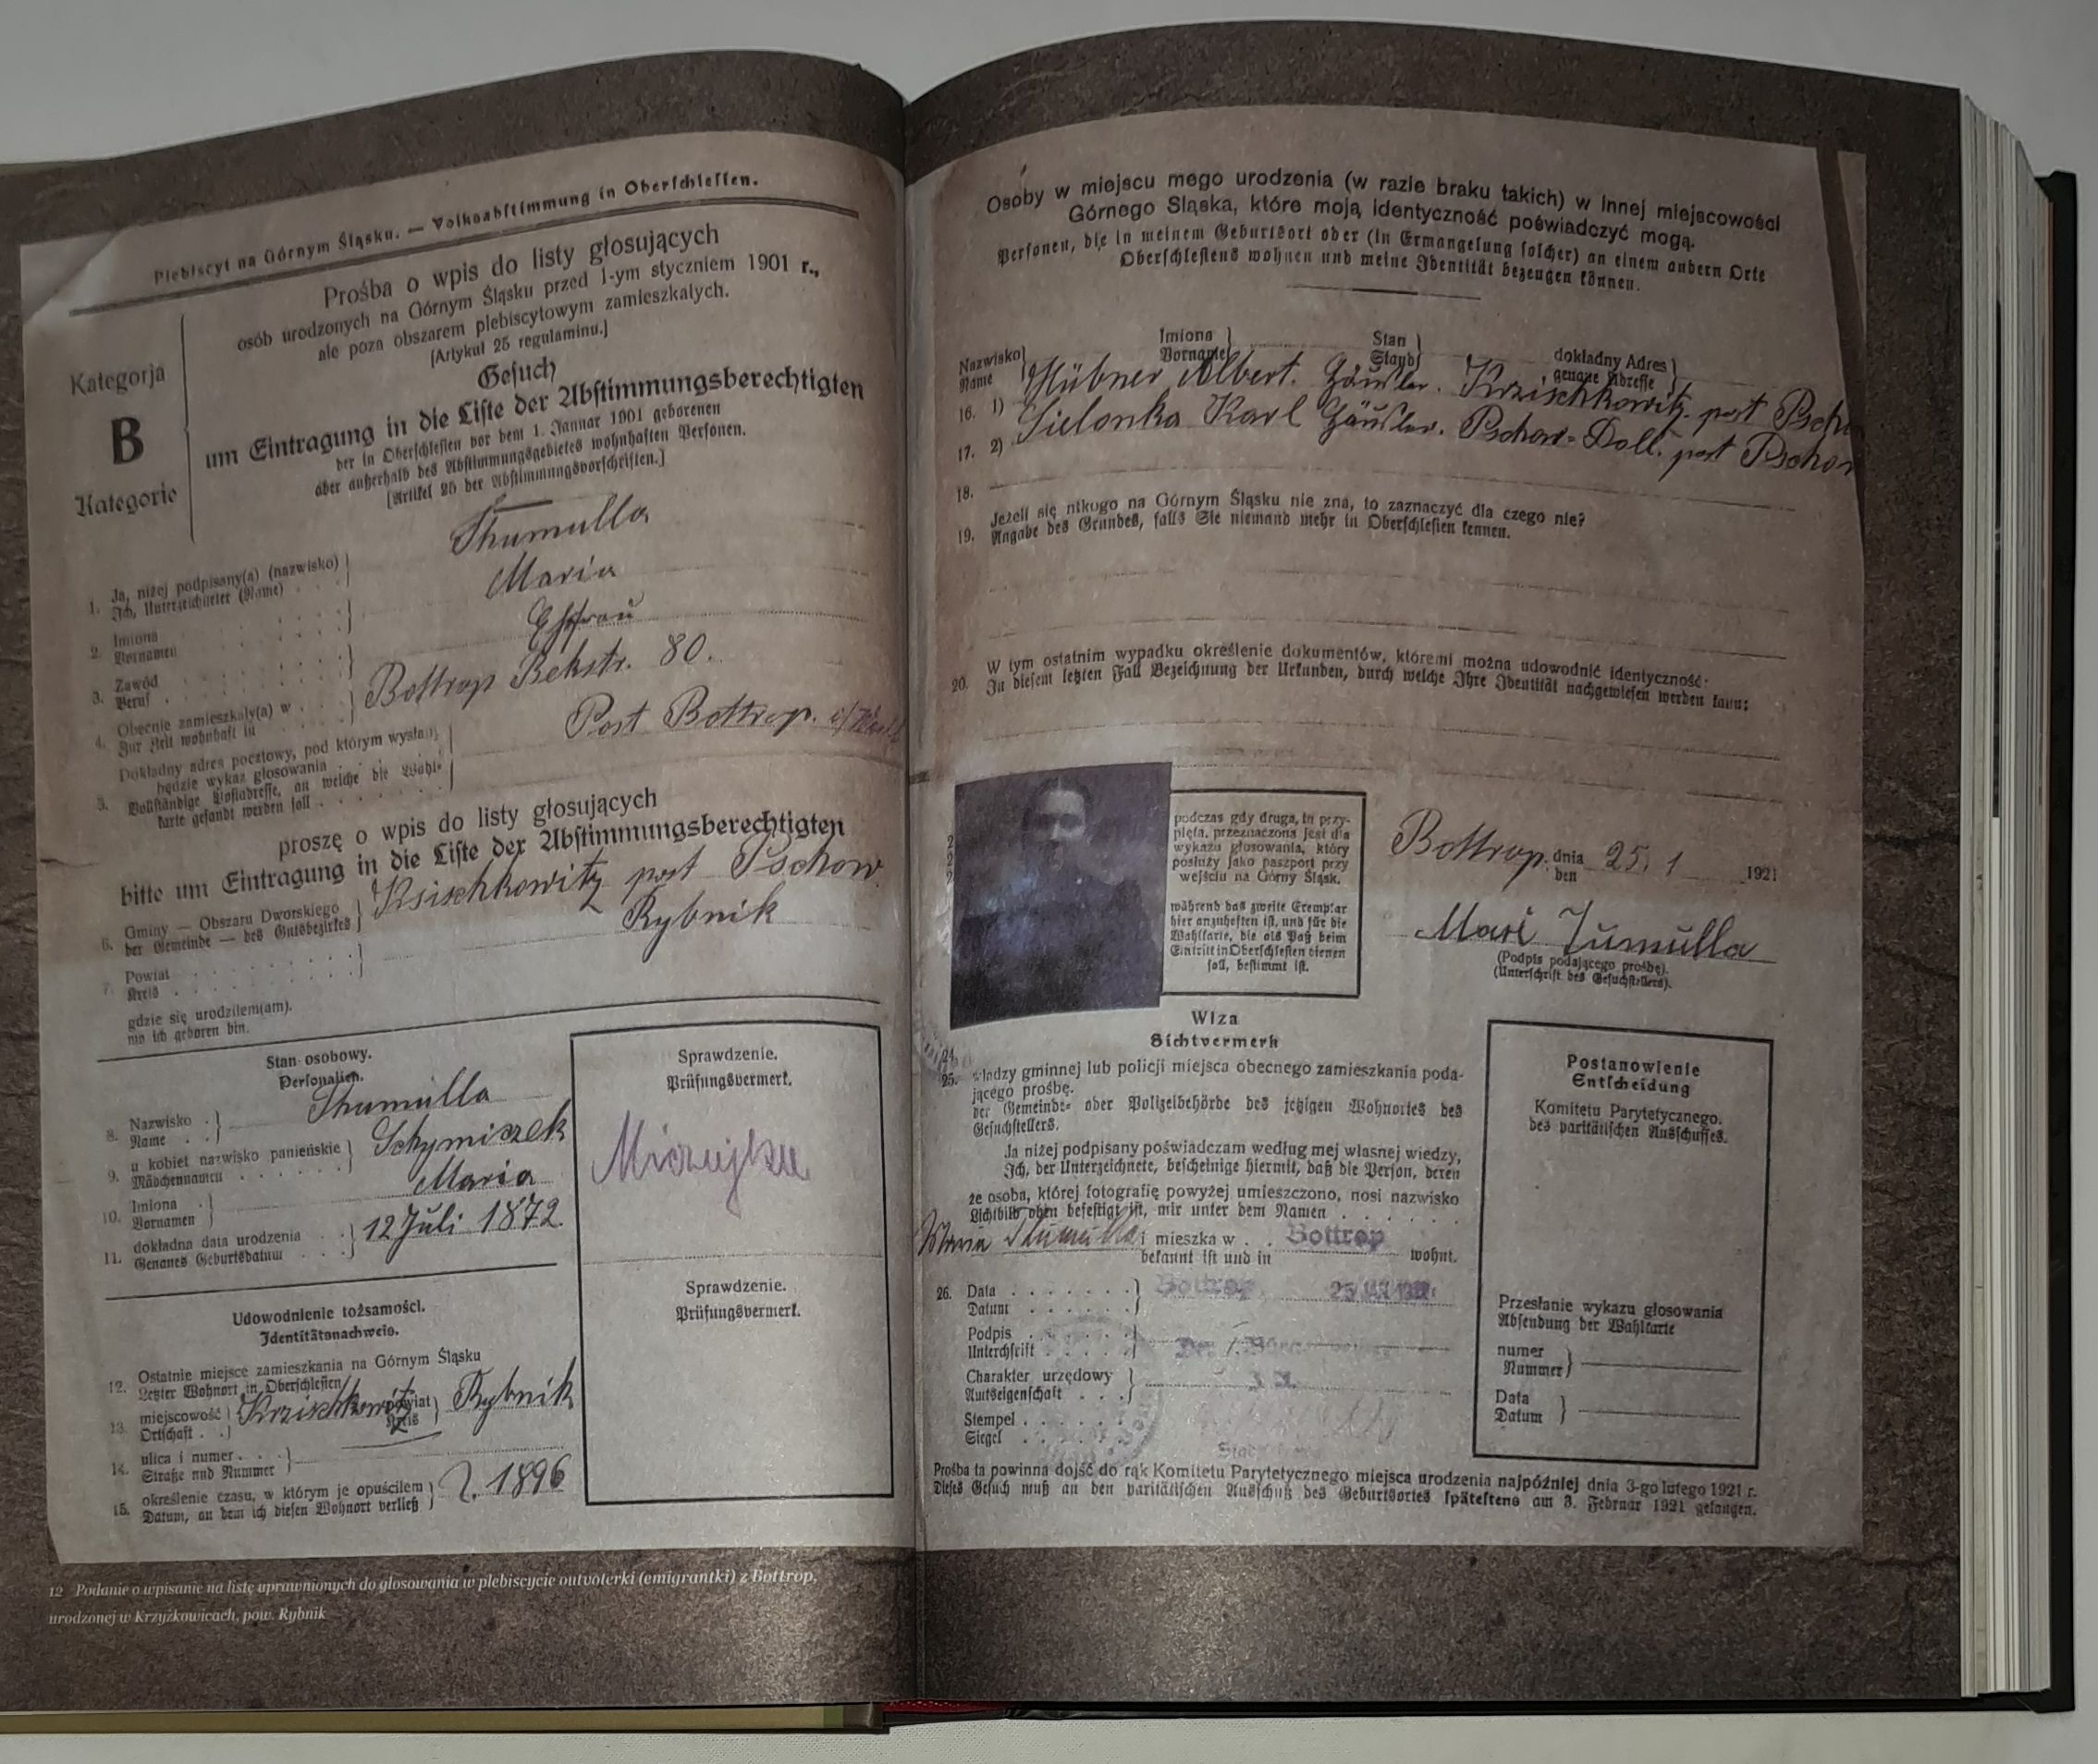 Plebiscyt na Górnym Śląsku. — Volksabstimmung in Oberschlesien.
Kategorja
B
Kategorie
Prośba o wpis do listy głosujących
osób urodzonych na Górnym Śląsku przed 1-ym styczniem 1901 r.,
ale poza obszarem plebiscytowym zamieszkałych.
[Artykuł 25 regulaminu.]
Gesuch
um Eintragung in die Liste der Abstimmungsberechtigten
der in Oberschlesien vor dem 1. Januar 1901 geborenen
aber außerhalb des Abstimmungsgebietes wohnhaften Personen.
[Artikel 25 der Abstimmungsvorschriften.]
1. Ja, niżej podpisany(a) (nazwisko)
Ich, Unterzeichneter (Name)
Thumulla
2. Imiona
Vornamen
Maria
3. Zawód
Beruf
Ehfrau
4. Obecnie zamieszkały(a) w
Zur Zeit wohnhaft in
Bottrop Bekstr. 80.
5. Dokładny adres pocztowy, pod którym wysłany
będzie wykaz głosowania
Vollständige Postadresse, an welche die Wahl-
karte gesandt werden soll
Post Bottrop.
proszę o wpis do listy głosujących
bitte um Eintragung in die Liste der Abstimmungsberechtigten
6. Gminy — Obszaru Dworskiego
der Gemeinde — des Gutsbezirkes
Krsischkowitz post Pschow
7. Powiat
Kreis
Rybnik
gdzie się urodziłem(am).
wo ich geboren bin.
Stan osobowy.
Personalien.
8. Nazwisko
Name
Thumulla
9. u kobiet nazwisko panieńskie
Mädchennamen
Schymiczek
10. Imiona
Vornamen
Maria
11. dokładna data urodzenia
Genaues Geburtsdatum
12 Juli 1872.
Udowodnienie tożsamości.
Identitätsnachweis.
12. Ostatnie miejsce zamieszkania na Górnym Śląsku
Letzter Wohnort in Oberschlesien
13. miejscowość
Ortschaft
Krzischkowitz
powiat
Kreis
Rybnik
14. ulica i numer
Straße und Nummer
15. określenie czasu, w którym je opuściłem
Datum, an dem ich diesen Wohnort verließ
1896
Sprawdzenie.
Prüfungsvermerk.
Sprawdzenie.
Prüfungsvermerk.
12 Podanie o wpisanie na listę uprawnionych do głosowania w plebiscycie outvoterki (emigrantki) z Bottrop,
urodzonej w Krzyżkowicach, pow. Rybnik
Osoby w miejscu mego urodzenia (w razie braku takich) w innej miejscowości
Górnego Śląska, które moją identyczność poświadczyć mogą.
Personen, die in meinem Geburtsort oder (in Ermangelung solcher) an einem andern Orte
Oberschlesiens wohnen und meine Identität bezeugen können.
Nazwisko
Name
Imiona
Vorname
Stan
Stand
dokładny Adres
genaue Adresse
16. 1) Hübner Albert. Häusler. Krzischkowitz. post
17. 2) Sielonka Karl Häusler. Pschow-Doll. post Pschow
18.
19. Jeżeli się nikogo na Górnym Śląsku nie zna, to zaznaczyć dla czego nie?
Angabe des Grundes, falls Sie niemand mehr in Oberschlesien kennen.
20. W tym ostatnim wypadku określenie dokumentów, któremi można udowodnić identyczność:
In diesem letzten Fall Bezeichnung der Urkunden, durch welche Ihre Identität nachgewiesen werden kann:
podczas gdy druga, tu przy-
pięta, przeznaczona jest dla
wykazu głosowania, który
posłuży jako paszport przy
wejściu na Górny Śląsk.
während das zweite Exemplar
hier anzuheften ist, und für die
Wahlkarte, die als Paß beim
Eintritt in Oberschlesien dienen
soll, bestimmt ist.
Bottrop. dnia
den 25. 1 1921
Mari Tumulla
(Podpis podającego prośbę).
(Unterschrift des Gesuchstellers).
Wiza
Sichtvermerk
24.
25. władzy gminnej lub policji miejsca obecnego zamieszkania poda-
jącego prośbę.
der Gemeinde- oder Polizeibehörde des jetzigen Wohnortes des
Gesuchstellers.
Ja niżej podpisany poświadczam według mej własnej wiedzy,
Ich, der Unterzeichnete, bescheinige hiermit, daß die Person, deren
że osoba, której fotografię powyżej umieszczono, nosi nazwisko
Lichtbild oben befestigt ist, mir unter dem Namen
Maria Thumulla i mieszka w Bottrop
bekannt ist und in wohnt.
26. Data
Datum
Bottrop,
Podpis
Unterschrift
Charakter urzędowy
Amtseigenschaft
Stempel
Siegel
Postanowienie
Entscheidung
Komitetu Parytetycznego.
des paritätischen Ausschusses.
Przesłanie wykazu głosowania
Absendung der Wahlkarte
numer
Nummer
Data
Datum
Prośba ta powinna dojść do rąk Komitetu Parytetycznego miejsca urodzenia najpóźniej dnia 3-go lutego 1921 r.
Dieses Gesuch muß an den paritätischen Ausschuß des Geburtsortes spätestens am 3. Februar 1921 gelangen.